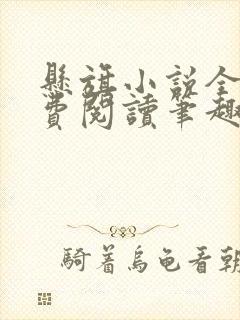 懸旗小說全
費閱讀筆趣
騎着烏龜看朝